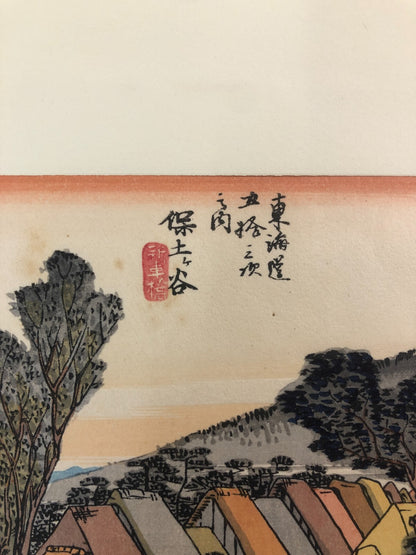 東海道
五拾三次
之内
保土ケ谷
新町橋